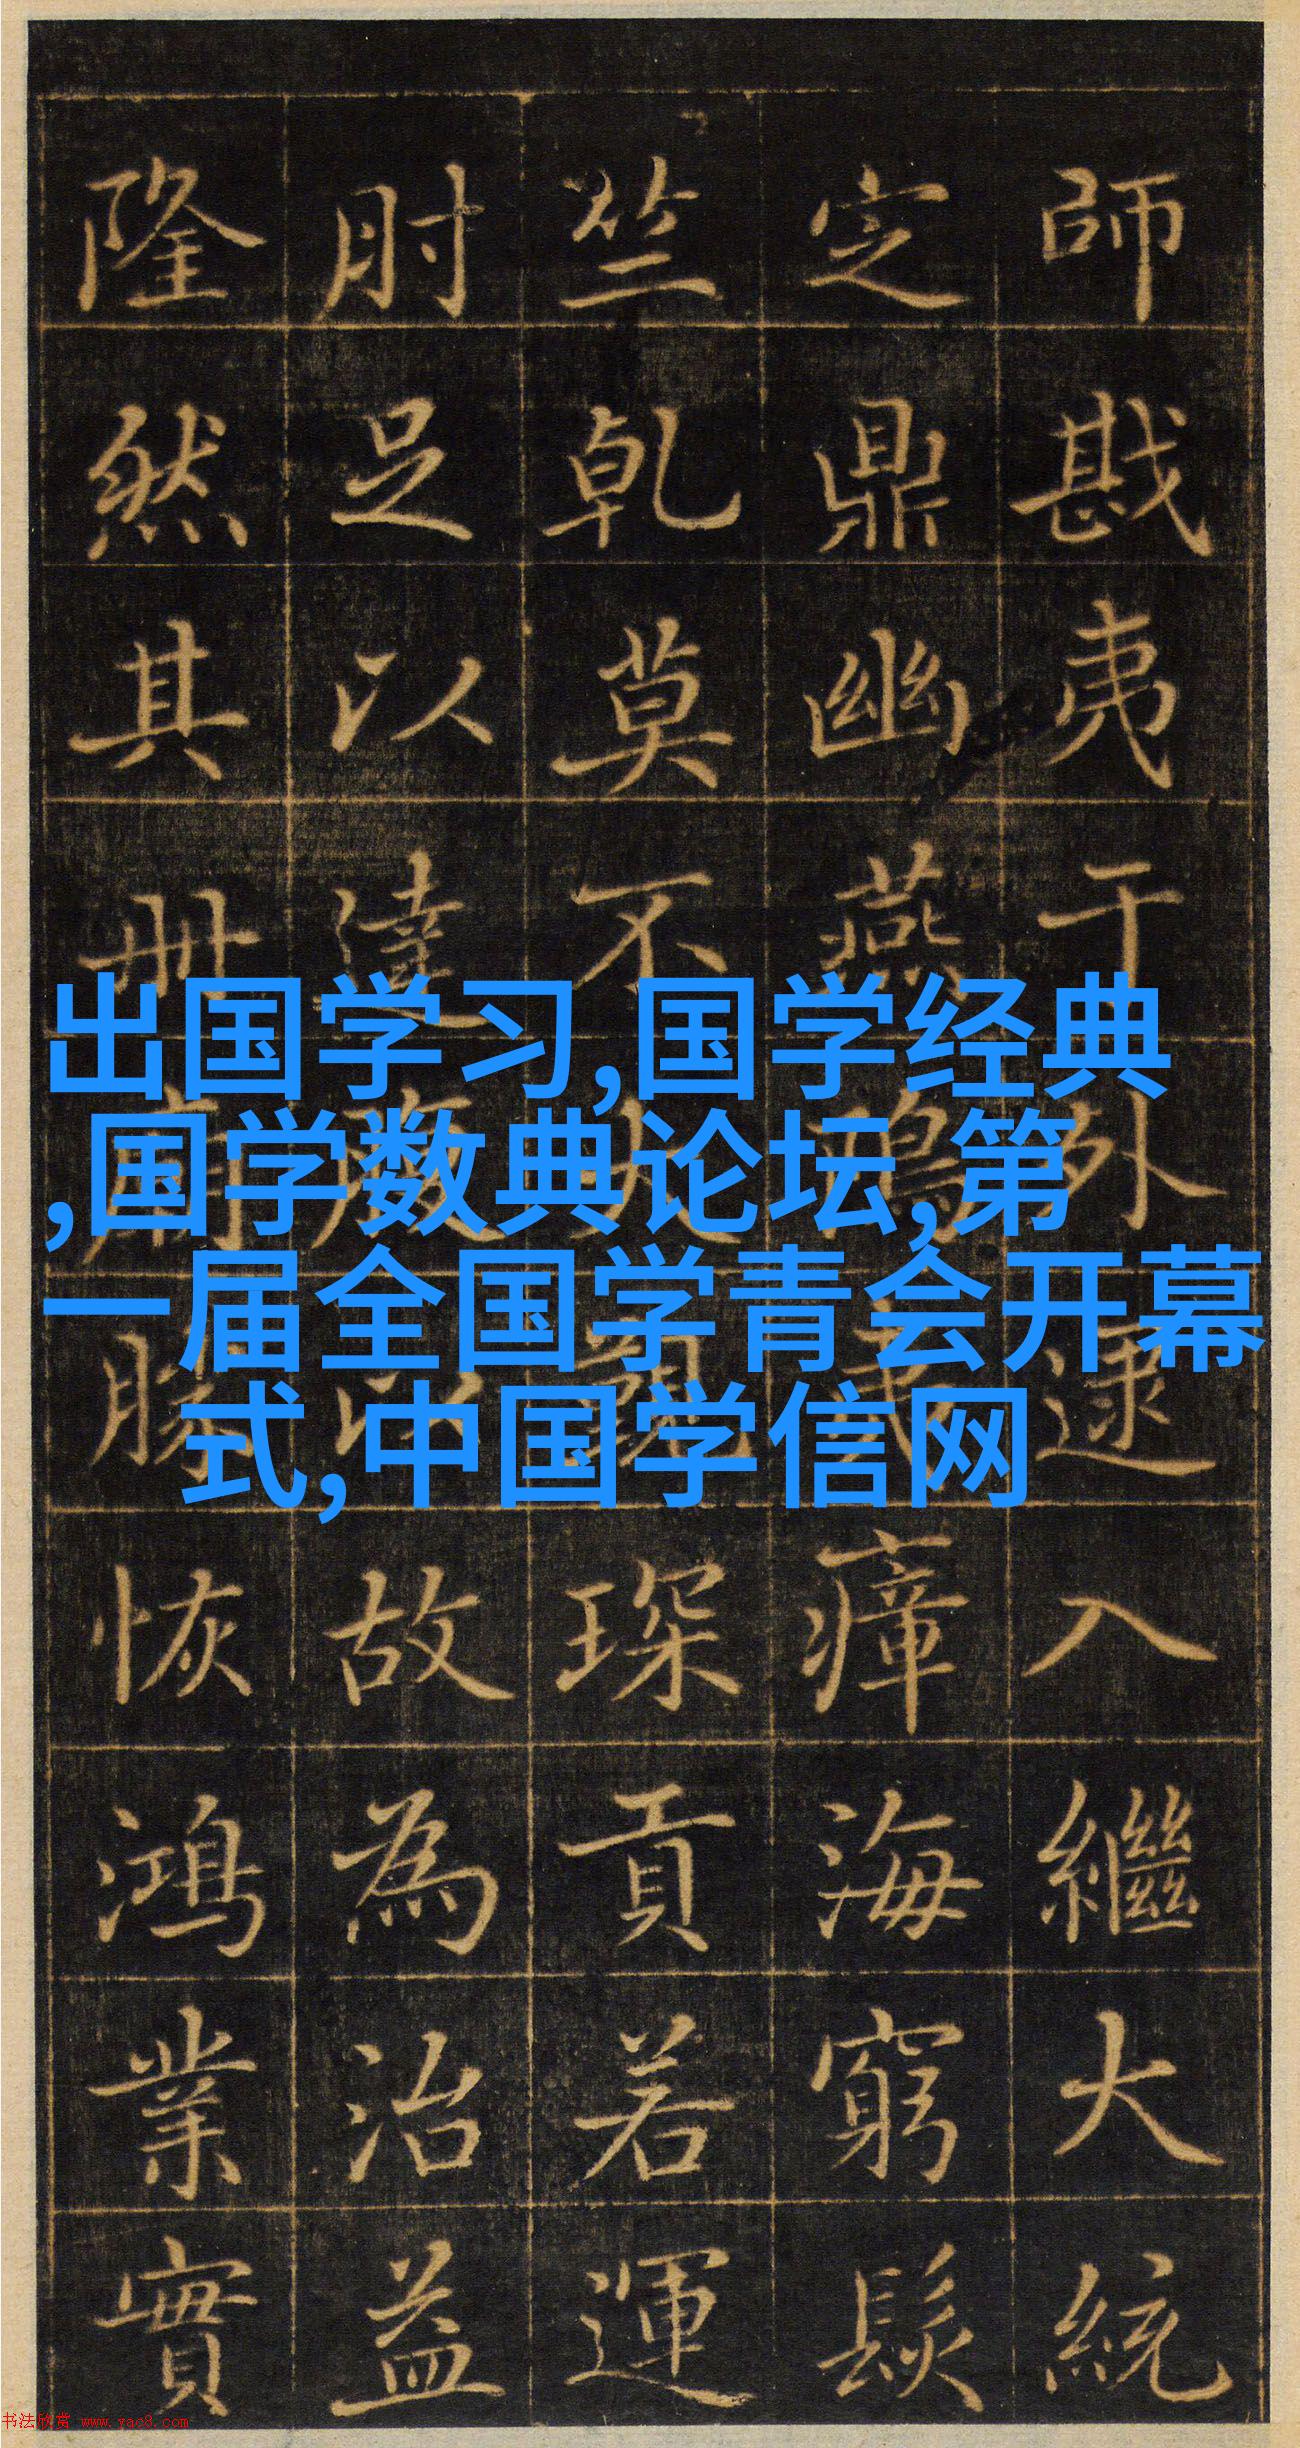 師戡夷于外逮入繼大統
定鼎幽燕瘴海窮髮
竺乾莫不琛貢若運
肘足以達以故為治益
隆然其冊恢鴻業實
出国学习,国学经典
,国学数典论坛,第
一届全国学青会开幕
式,中国学信网
书法欣赏 www.yac8.com